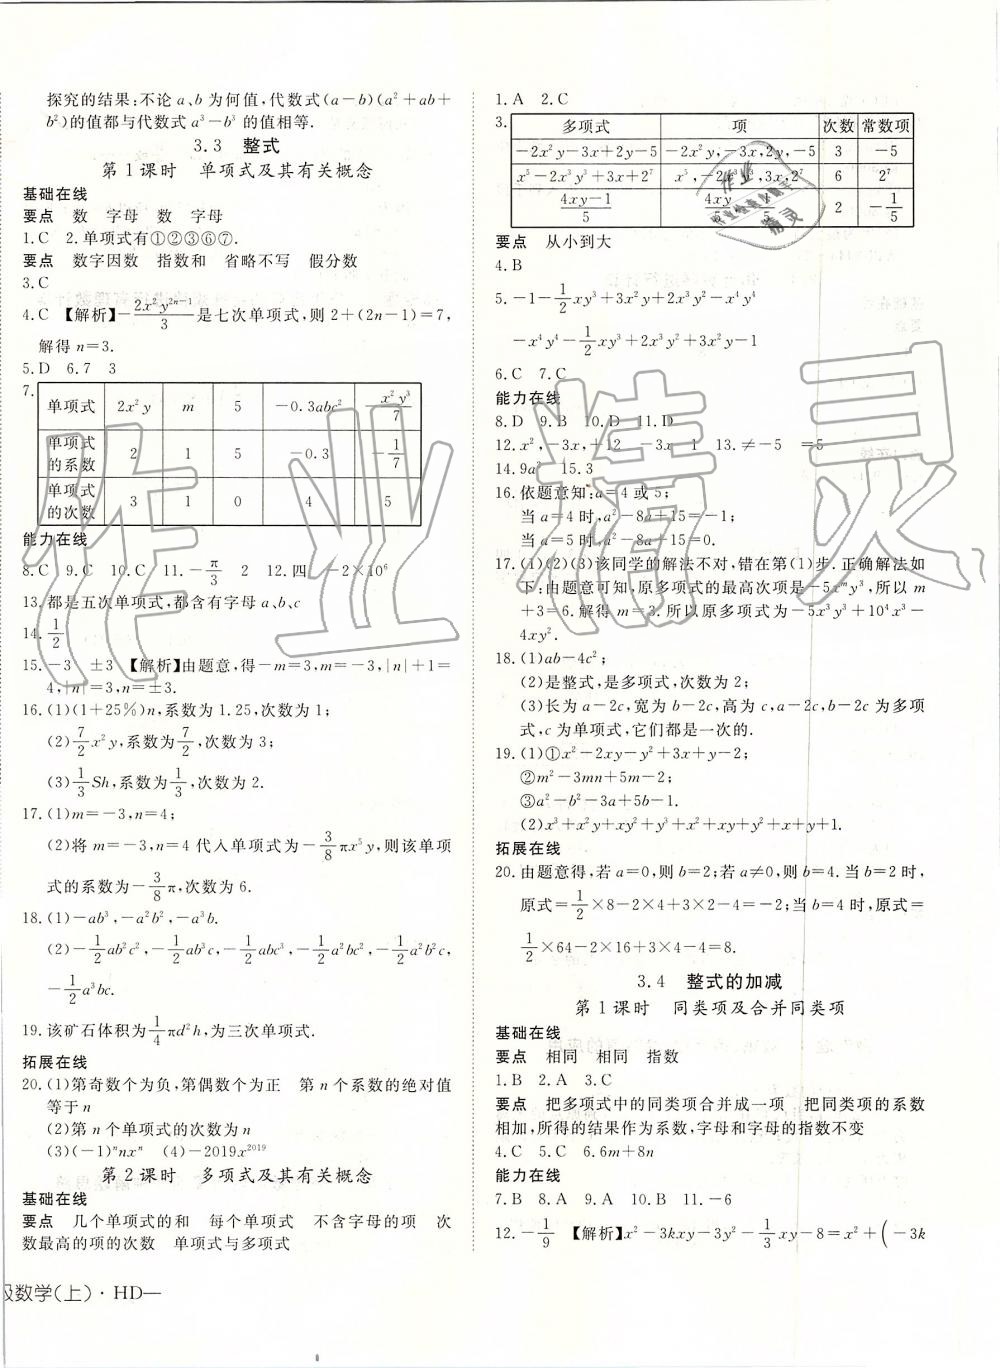 探究的结果:不论 a、b 为何值,代数式(a-b)(a²+ab+
b²)的值都与代数式 a³-b³ 的值相等.
3.3 整式
第1课时 单项式及其有关概念
基础在线
要点 数 字母 数 字母
1.C 2.单项式有①②③⑥⑦.
要点 数字因数 指数和 省略不写 假分数
3.C
4.C 【解析】-2x²y²ⁿ⁻¹/3是七次单项式,则 2+(2n-1)=7,
解得 n=3.
5.D 6.7 3
7.
单项式 2x²y m 5 -0.3abc² -x²y³/7
单项式的系数 2 1 5 -0.3 -1/7
单项式的次数 3 1 0 4 5
能力在线
8.C 9.C 10.C 11.-π/3 2 12.四 -2×10⁶
13.都是五次单项式,都含有字母 a、b、c
14.1/2
15.-3 ±3 【解析】由题意,得-m=3,m=-3,|n|+1=
4,|n|=3,n=±3.
16.(1)(1+25%)n,系数为 1.25,次数为 1;
(2)7/2x²y,系数为7/2,次数为 3;
(3)1/3Sh,系数为1/3,次数为 2.
17.(1)m=-3,n=4;
(2)将 m=-3,n=4 代入单项式为-3/8πx⁵y,则该单项
式的系数为-3/8π,次数为 6.
18.(1)-ab³,-a²b²,-a³b.
(2)-1/2ab²c²,-1/2ab³c,-1/2abc³,-1/2a²bc²,-1/2a²b²c,
-1/2a³bc.
19.该矿石体积为1/4πd²h,为三次单项式.
拓展在线
20.(1)第奇数个为负,第偶数个为正 第 n 个系数的绝对值
等于 n
(2)第 n 个单项式的次数为 n
(3)(-1)ⁿnxⁿ (4)-2019x²⁰¹⁹
第2课时 多项式及其有关概念
基础在线
要点 几个单项式的和 每个单项式 不含字母的项 次
数最高的项的次数 单项式与多项式
级数学(上)·HD—
1.A 2.C
3.
多项式 项 次数 常数项
-2x²y-3x+2y-5 -2x²y,-3x,2y,-5 3 -5
x⁵-2x³y³+3x+2⁷ x⁵,-2x³y³,3x,2⁷ 6 2⁷
4xy-1/5 4xy/5,-1/5 2 -1/5
要点 从小到大
4.B
5.-1-1/2xy³+3x²y+2x³y²-x⁴y⁴
-x⁴y⁴-1/2xy³+2x³y²+3x²y-1
6.C 7.C
能力在线
8.D 9.B 10.D 11.D
12.x²,-3x,+12 -3x 1 13.≠-5 =5
14.9a² 15.3
16.依题意知:a=4 或 5;
当 a=4 时,a²-8a+15=-1;
当 a=5 时,a²-8a+15=0.
17.(1)(2)(3)该同学的解法不对,错在第(1)步.正确解法如
下:由题意可知,原多项式的最高次项是-5xᵐy³,所以 m
+3=6.解得 m=3.所以原多项式为-5x³y³+10⁴x³-
4xy².
18.(1)ab-4c²;
(2)是整式,是多项式,次数为 2;
(3)长为 a-2c,宽为 b-2c,高为 c,a-2c,b-2c 为多项
式,c 为单项式,它们都是一次的.
19.(1)①x²-2xy-y²+3x+y-2;
②m²-3mn+5m-2;
③a²-b²-3a+5b-1.
(2)x³+x²y+xy²+y³+x²+xy+y²+x+y+1.
拓展在线
20.由题意得,若 a=0,则 b=2;若 a≠0,则 b=4.当 b=2 时,
原式=1/2×8-2×4+3×2-4=-2;当 b=4 时,原式=
1/2×64-2×16+3×4-4=8.
3.4 整式的加减
第1课时 同类项及合并同类项
基础在线
要点 相同 相同 指数
1.B 2.A 3.C
要点 把多项式中的同类项合并成一项 把同类项的系数
相加,所得的结果作为系数,字母和字母的指数不变
4.C 5.C 6.6m+8n
能力在线
7.B 8.A 9.A 10.B 11.-6
12.-1/9 【解析】x²-3kxy-3y²-1/3xy-8=x²+(-3k
作业精灵
作业精灵